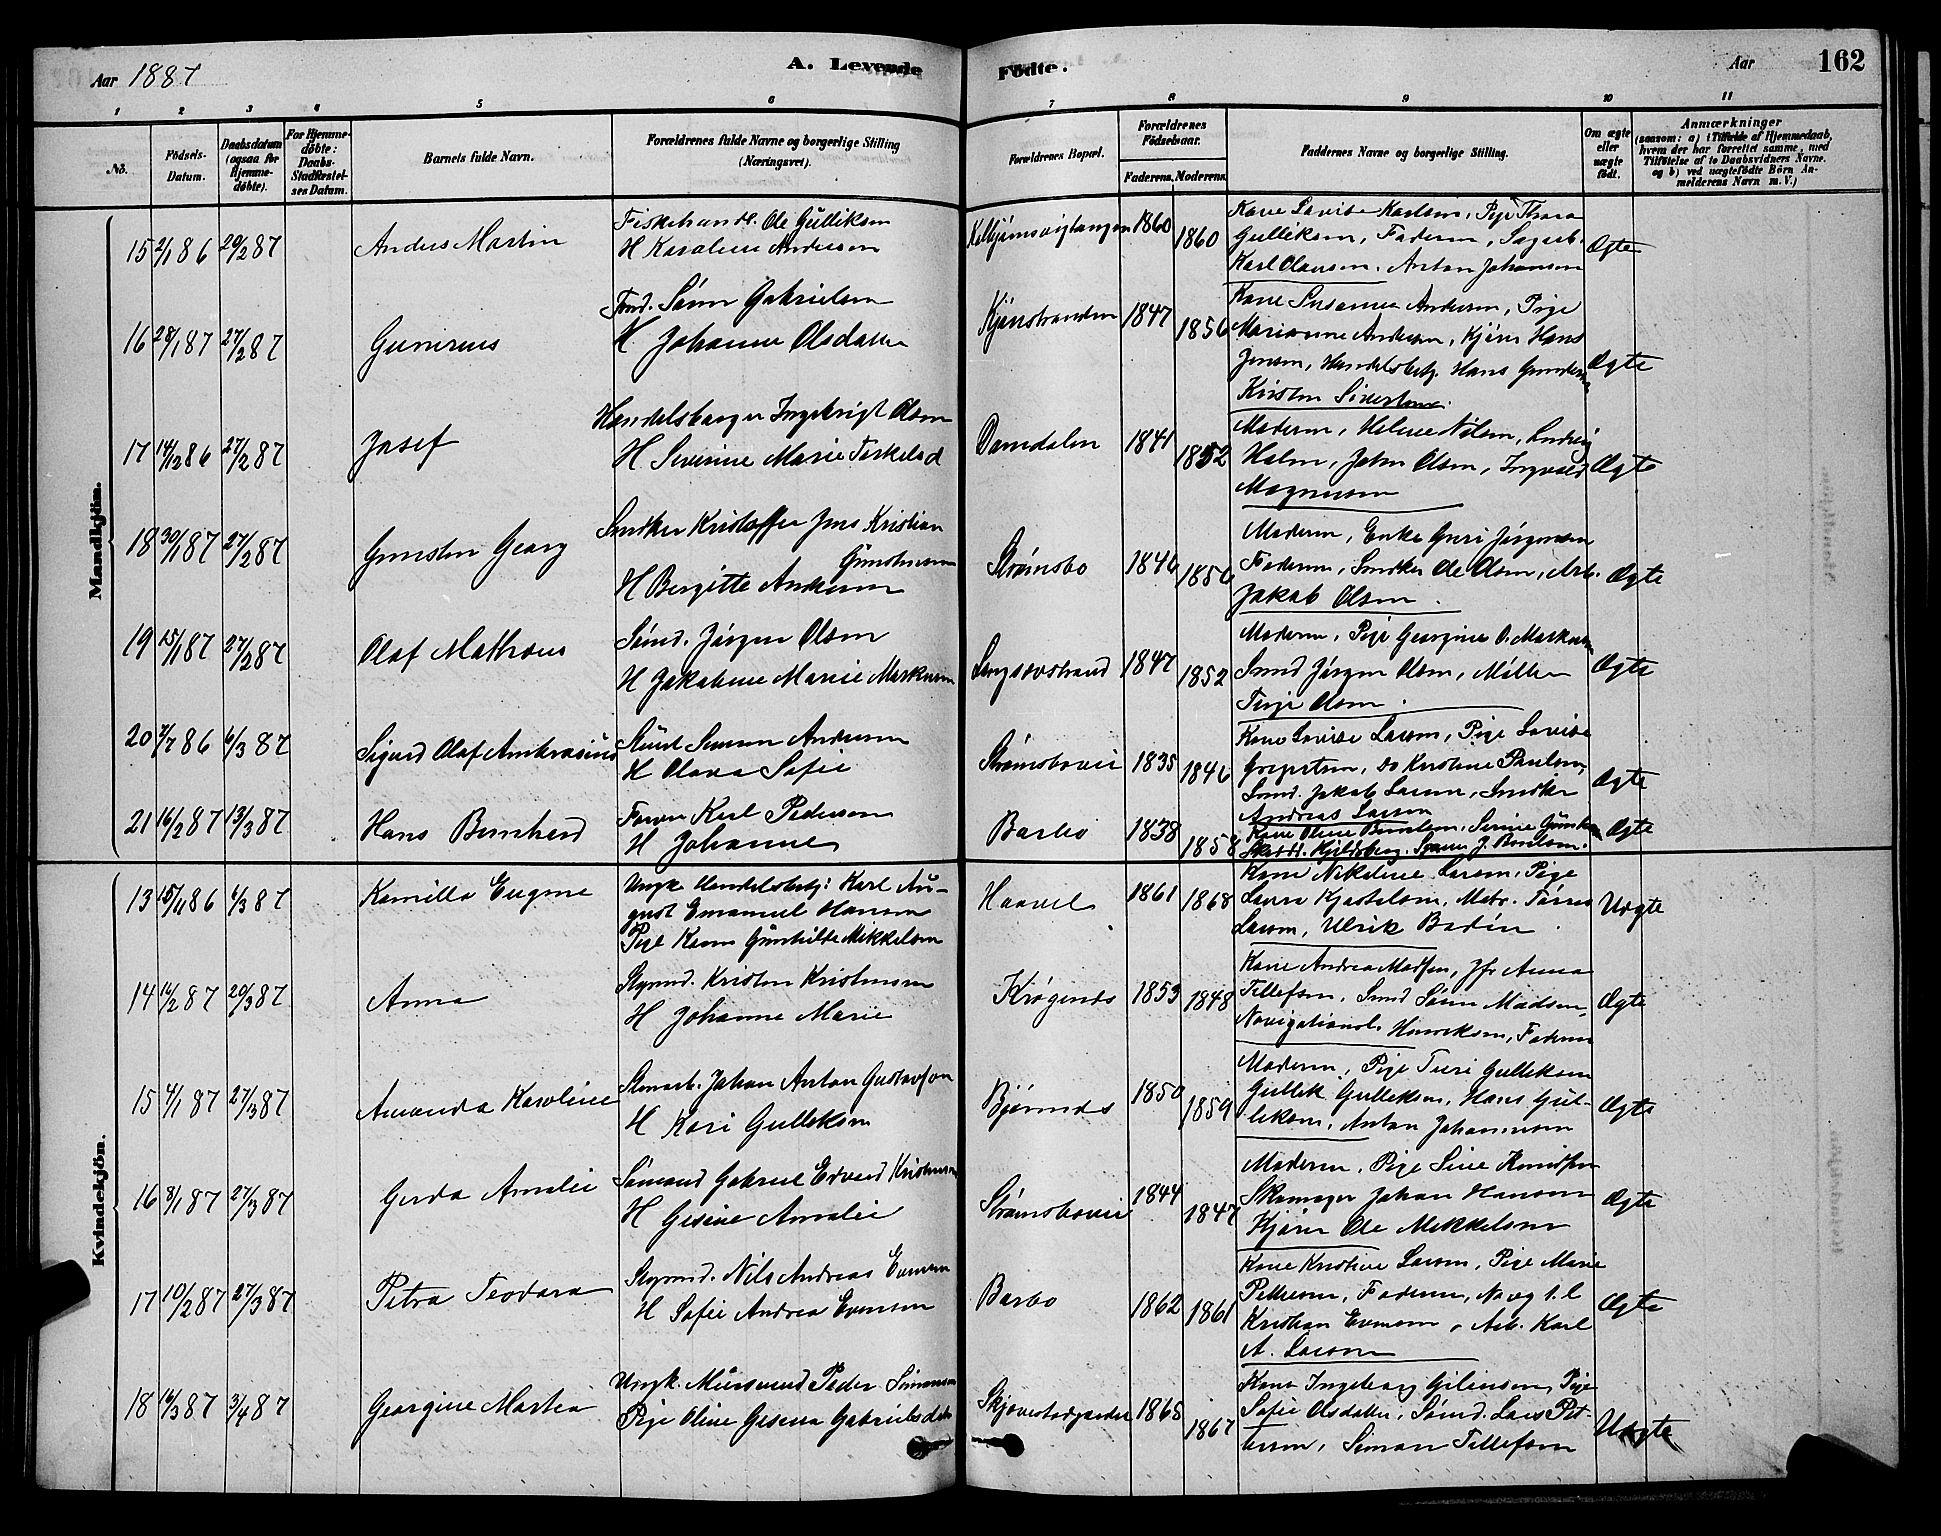 Aar 1887
A. Levende Födte.
Aar
162
1 2 3 4 5 6 7 8 9 10 11
No.
Födsels-Datum.
Daabsdatum (ogsaa for Hjemmedöbte).
For Hjemmedöbte: Daabs-Stadfæstelses Datum.
Barnets fulde Navn.
Forældrenes fulde Navne og borgerlige Stilling (Næringsvei).
Forældrenes Bopæl.
Forældrenes Födselsaar.
Faderens. Moderens.
Faddernes Navne og borgerlige Stilling.
Om ægte eller uægte födt.
Anmærkninger
(saasom: a) i Tilfælde af Hjemmedaab, hvem der har forrettet samme, med Tilföielse af to Daabsvidners Navne. og b) ved uægtefödte Börn Anmelderens Navn m. V.)
Mandkjön.
15 2/1 86 20/2 87 Anders Martin
Fiskehandl. Ole Gulliksen
H Karoline Andersen
1860 1860
Kone Lovise Karlsen, Pige Thara
Gulliksen, Faderen, Sagarb.
Karl Olausen. Anton Johansen
Ægte
16 28/1 87 27/2 87 Gunerius
Tømd. Sønn Gabrielsen
H. Johanne Olsdatter
Kjenstranden 1847 1856
Kone Susanne Andersen, Pige
Marianne Andersen, Kjører Hans
Jensen, Handelsbetj. Hans Gundersen
Kristen Sivertsen.
Ægte
17 14/12 86 27/2 87 Josef
Handelsborger Ingebrigt Olsen
H Severine Marie Terkelsd
Damdalen 1841 1852
Moderen, Helene Nilsen, Ludvig
Holm, John Olsen, Ingvald
Magnusen
Ægte
18 30/1 87 27/2 87 Gunsten Georg
Snedker Kristoffer Jens Kristian
Gunstensen
H Bergitte Andersen
Strømsbo 1846 1856
Moderen, Enke Guri Jørgensen
Faderen, Snedker Ole Olsen, Arb.
Jakob Olsen.
Ægte
19 15/1 87 27/2 87 Olaf Mathæus
Sømd. Jørgen Olsen
H Jakobine Marie Markusen
Langsævstrand 1847 1852
Moderen, Pige Georgine O. Markusen
Smed Jørgen Olsen, Møller
Terje Olsen.
Ægte
20 7/7 86 6/3 87 Sigurd Olaf Ambrosius
Simon Andersen
H Olava Sofie
Strømsboveie 1835 1846
Kone Lovise Larsen, Pige Lovise
do Kristine Paulsen,
Smd. Jakob Larsen, Snedker
Andreas Larsen
Ægte
21 16/2 87 13/3 87 Hans Bernhard
Farver Karl Pedersen
H Johanne
Barbo 1838 1858
Ægte
Kvindekjön.
13 15/11 86 6/3 87 Kamilla Eugene
Ungk. Handelsbetj. Karl Au-
gust Emanuel Hansen
Pige Karen Gunhilde Mikkelsen
Haavel 1861 1868
Kone Nikoline Larsen, Pige
Laura Kjøstelsen, Matr. Tørres
Larsen, Ulrik Bodin.
Uægte
14 16/2 87 20/3 87 Anna
Styrmd. Kristen Kristensen
H Johanne Marie
Krøgenes 1853 1848
Kone Andrea Madsen, Jfr Anna
Tellefsen, Smd Sønn Madsen,
Navigationsl. Henriksen, Faderen
Ægte
15 4/1 87 27/3 87 Amanda Karoline
Stenarb. Johan Anton Gustavson
H Kari Gulleksen
Bjørnnes 1850 1859
Moderen, Pige Turi Gulleksen
Gullek Gulleksen, Hans Gul-
leksen, Anton Johannesen
Ægte
16 8/1 87 27/3 87 Gerda Amalie
Sømand Gabriel Edvard Kristensen
H Gesine Amalie
Strømsboveie 1844 1847
Moderen, Pige Sine Knudsen
Skomager Johan Hansen
Kjører Ole Mikkelsen
Ægte
17 10/2 87 27/3 87 Petra Teodora
Styrmd. Nils Andreas Evensen
H Sofie Andrea Evensen
Barbo 1862 1861
Kone Kristine Larsen, Pige Marie
Pettersen, Faderen, Navg. l.
Kristian Evensen, Arb. Karl
A. Larsen
Ægte
18 16/3 87 3/4 87 Georgine Martea
Ungk. Mursvend Peder Simonsen
Pige Oline Gesena Gabrielsdtr
1865 1867
Kone Ingeborg Gilensen, Pige
Sofie Olsdatter, Sømd. Lars Pet-
tersen, Simon Tellefsen
Uægte